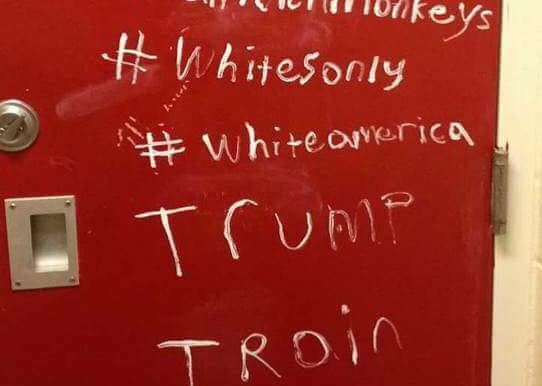 monkeys
#Whitesonly
#whiteamerica
TrUMP
TRain